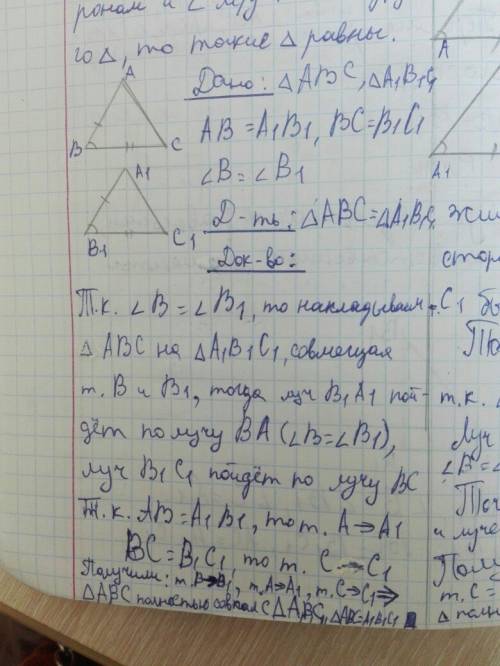 ронам и ∠ м/у
го Δ, то такие Δ равны.
Дано: ΔABC, ΔA1B1C1
AB = A1B1, BC = B1C1
∠B = ∠B1
Д-ть: ΔABC = ΔA1B1C1
Док-во:
A
B
C
A1
B1
C1
Т.к. ∠B = ∠B1, то накладываем
Δ ABC на ΔA1B1C1, совмещая
т. B и B1, тогда луч B1A1 пой-
дёт по лучу BA (∠B = ∠B1),
луч B1C1 пойдёт по лучу BC
Т.к. AB = A1B1, то т. A → A1
BC = B1C1, то т. C → C1
Получили: т. B → B1, т. A → A1, т. C → C1 ⇒
ΔABC полностью совпал с ΔA1B1C1, ΔABC = ΔA1B1C1
A
A1
жи
сторо
т. C1 бы
По
т.к.
Луч
∠B = ∠
Точ
и луче
Полу
т. C =
Δ полн